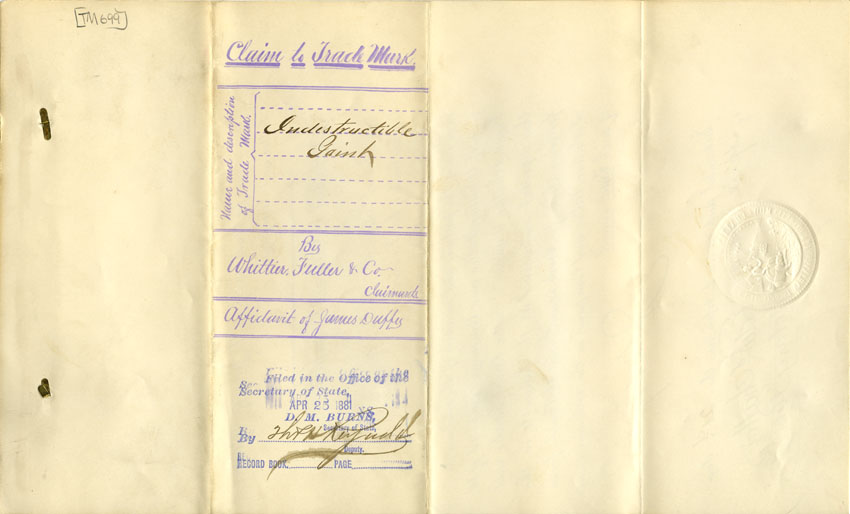 [TM699]
Claim to Trade Mark.
Name and description
of Trade Mark.
Indestructible
Paint
By
Whittier, Fuller & Co.
Claimants
Affidavit of James Duffy
Filed in the Office of the
Secretary of State,
APR 25 1881
D. M. BURNS,
Secretary of State,
By
Deputy.
RECORD BOOK PAGE